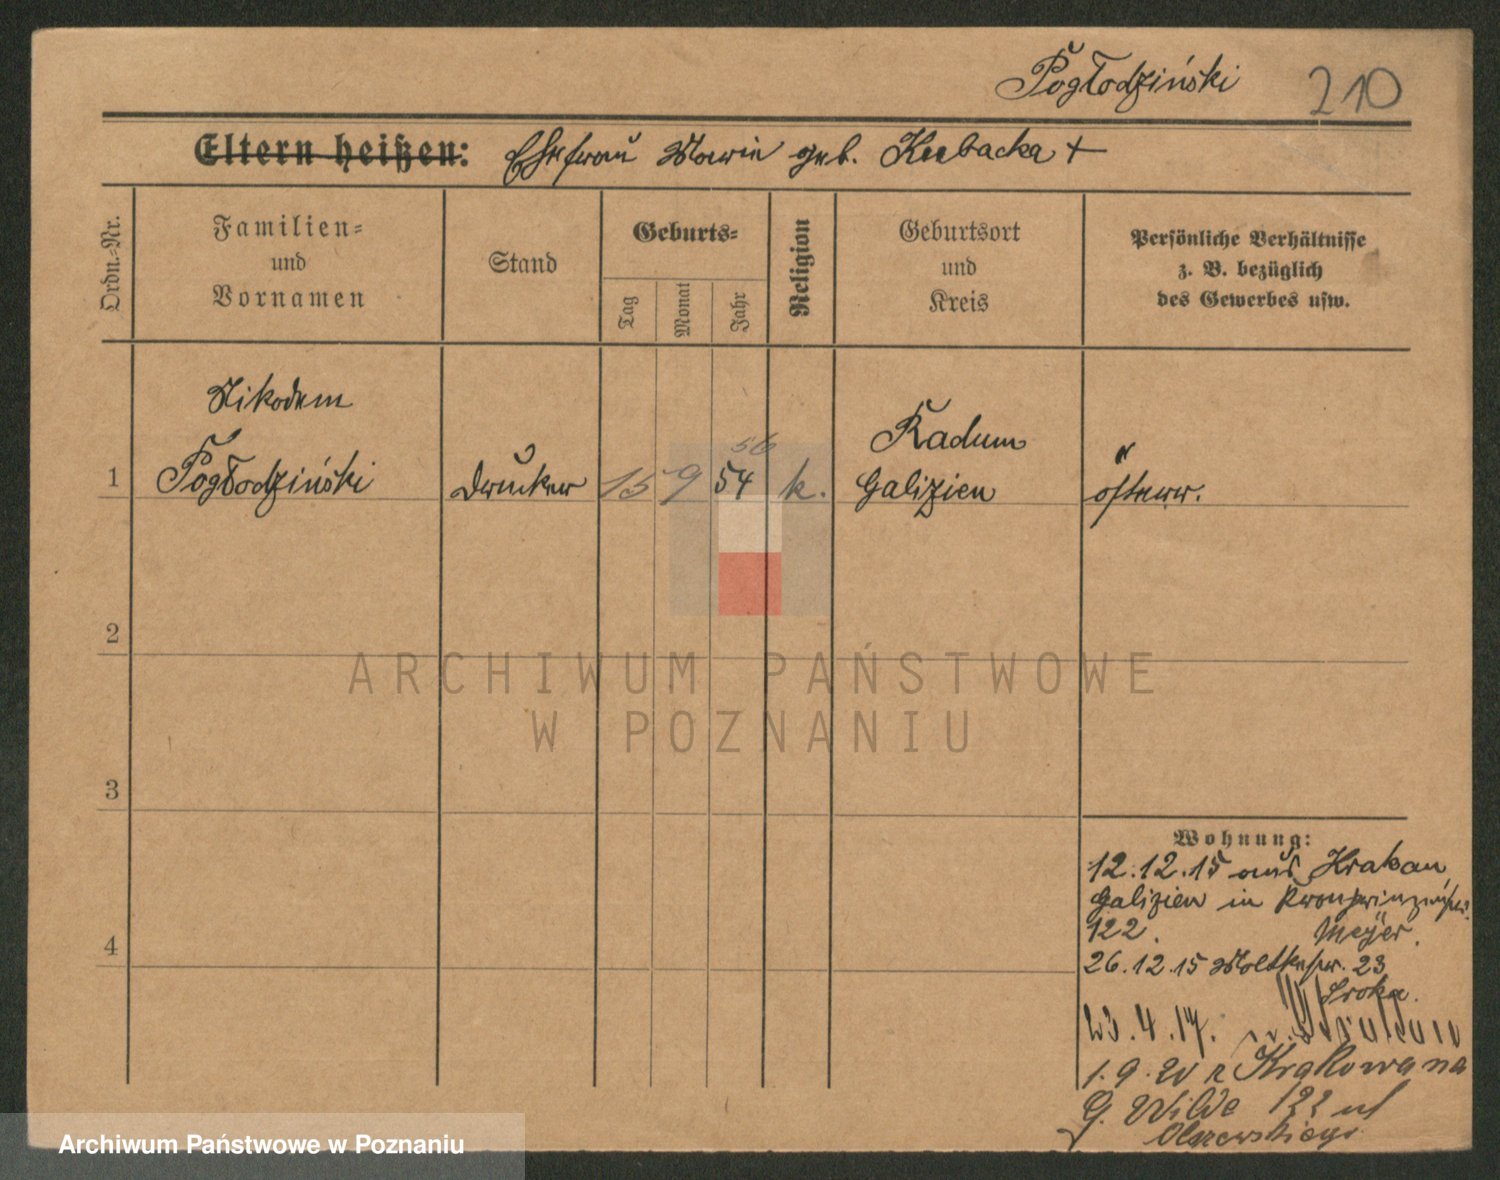 Pogłodziński 210
Eltern heißen: Ehefrau Marie geb. Kubacka +
Ordn.-Nr.
Familien-
und
Vornamen
Stand
Geburts-
Tag
Monat
Jahr
Religion
Geburtsort
und
Kreis
Persönliche Verhältnisse
z. B. bezüglich
des Gewerbes usw.
Nikodem
56
Radum
1 Pogłodziński Drucker 15 9 54 k. Galizien österr.
2
ARCHIWUM PAŃSTWOWE
W POZNANIU
3
Wohnung:
12.12.15 aus Krakau
Galizien in Kronprinzenstr.
122. Meyer.
4
26.12.15 Moltkestr. 23
Sroka.
23.4.17.
1.9.20 z Krakowa na
G. Wilde 122 ul
Archiwum Państwowe w Poznaniu